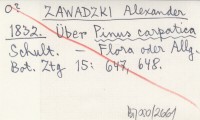 ZAWADZKI Alexander
1832. Über Pinus carpatica
Schult. — Flora oder Allg.
Bot. Ztg 15: 647, 648.